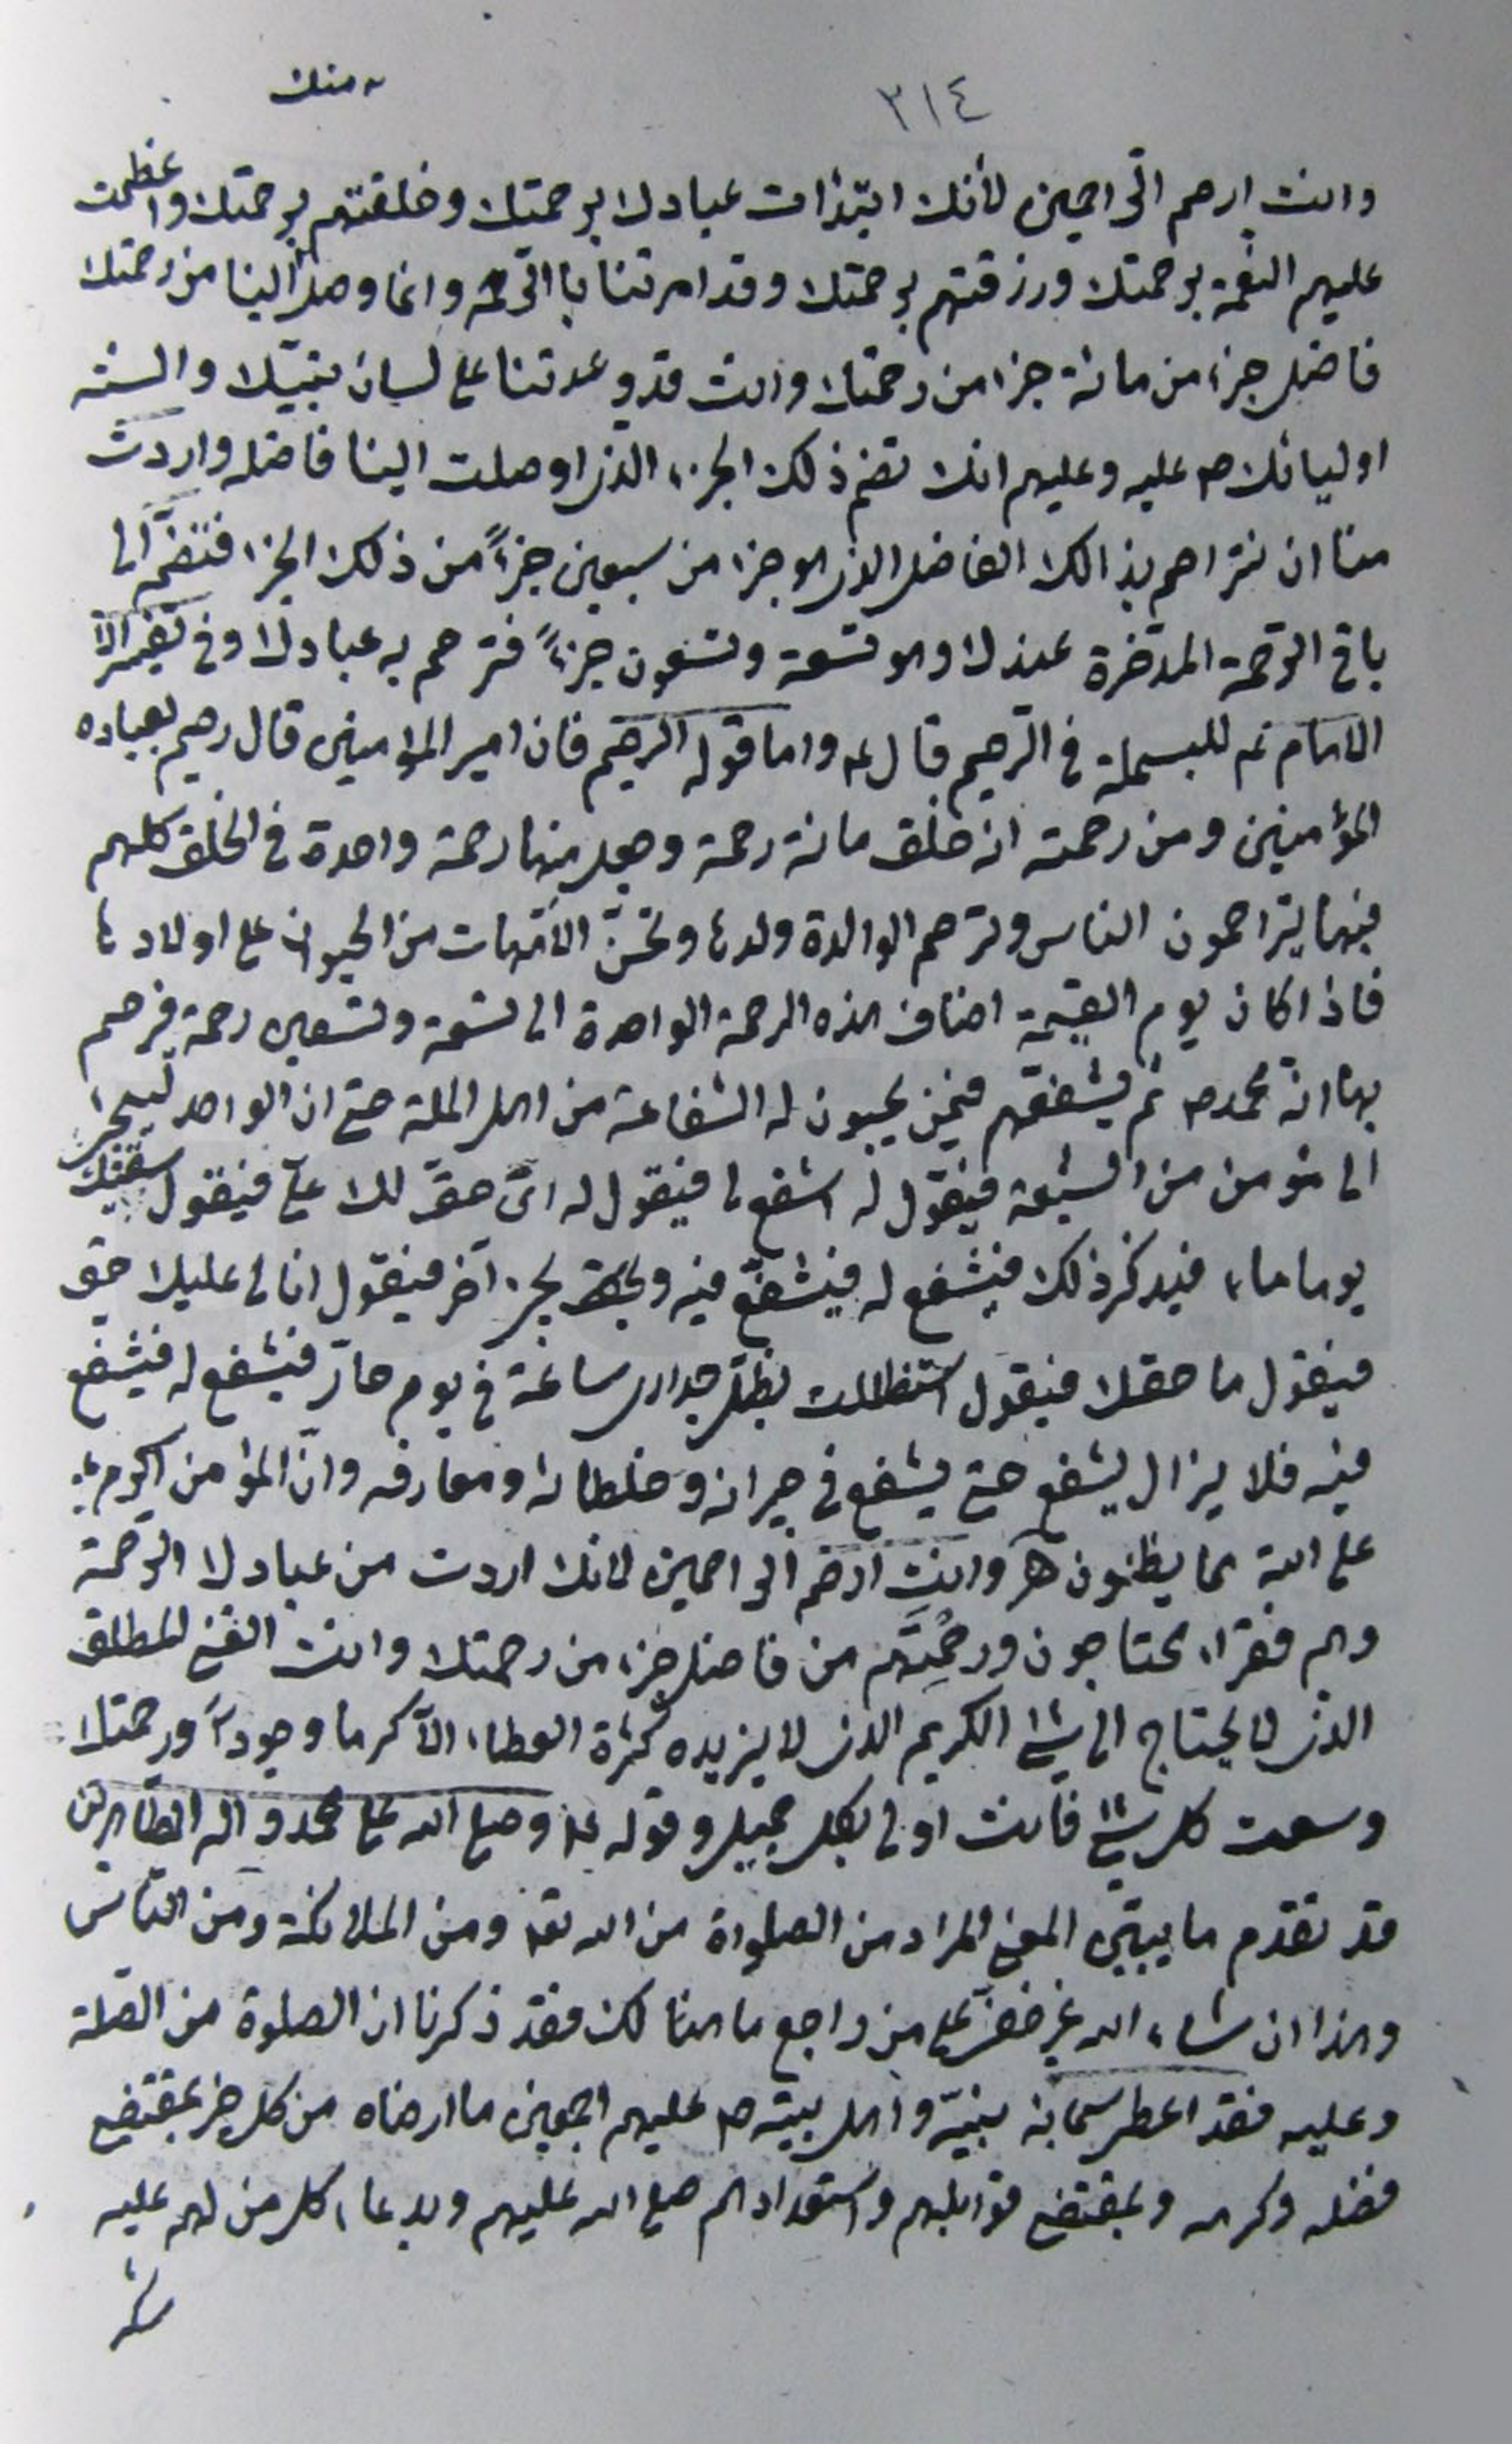 ـه منك
٣١٤
وانت ارحم الرّاحمين لأنك ابتدات عبادك برحمتك وخلقتهم برحمتك واعظمت
عليهم النعمة برحمتك ورزقتهم برحمتك وقد امرتنا باالرّحمة وانما وصل الينا من رحمتك
فاضل جزء من مائة جزء من رحمتك وانت قد وعدتنا على لسان نبيّك والسنة
اوليائك ص عليه وعليهم انك تضم ذلك الجزء الذى اوصلت الينا فاضله واردت
منا ان نتراحم بذالك الفاضل الذى هو جزء من سبعين جزءً من ذلك الجزء فتضمّه الى
باقى الرّحمة المدّخرة عندك وهو تسعة وتسعون جزءً فترحم به عبادك وفى تفسير
الامام ع للبسملة فى الرّحيم قال ع واما قوله الرحيم فان امير المؤمنين قال رحيم بعباده
المؤمنين ومن رحمته انه خلق مائة رحمة وجعل منها رحمة واحدة فى الخلق كلهم
فبها يتراحمون الناس وترحم الوالدة ولدها وتحنّن الأمّهات من الحيوان على اولادها
فاذا كان يوم القيمة اضاف هذه الرحمة الواحدة الى تسعة وتسعين رحمة فرحم
بها امّة محمد ص ثم يشفّعهم فيمن يحبون له الشفاعة من اهل الملة حتى ان الواحد ليجئ
الى مؤمن من الشيعة فيقول له اشفع لى فيقول له اىّ حقّ لك علىّ فيقول سقيتك
يوما ماء فيذكر ذلك فيشفع له فيشفّع فيه ويجئ آخر فيقول انا لى عليك حق
فيقول ما حقك فيقول استظللت بظلّ جدارى ساعة فى يوم حارّ فيشفع له فيشفع
فيه فلا يزال يشفع حتى يشفع فى جيرانه وخلطائه ومعارفه وانّ المؤمن اكرم
على الله مما يظنون هـ وانت ارحم الراحمين لانك اردت من عبادك الرّحمة
وهم فقراء محتاجون ورحمتهم من فاضل جزء من رحمتك وانت الغنى المطلق
الذى لا يحتاج الى شئ الكريم الذى لا يزيده كثرة العطاء الّا كرما وجوداً ورحمتك
وسعت كل شئ فانت اولى بكل جميل وقوله ع وصلى الله على محمد واله الطاهرين
قد تقدم ما يبيّن المعنى المراد من الصلواة من الله تعه ومن الملائكة ومن الناس
وهذا ان شاء الله غير خفىّ على من راجع ما هنالك فقد ذكرنا ان الصلوة من الصلة
وعليه فقد اعطى سبحانه نبيّه واهل بيته ص عليهم اجمعين ما ارضاه من كل خير بمقتضى
فضله وكرمه وبمقتضى قوابلهم واستعدادهم صلى الله عليهم وبدعاء كل من لهم عليه